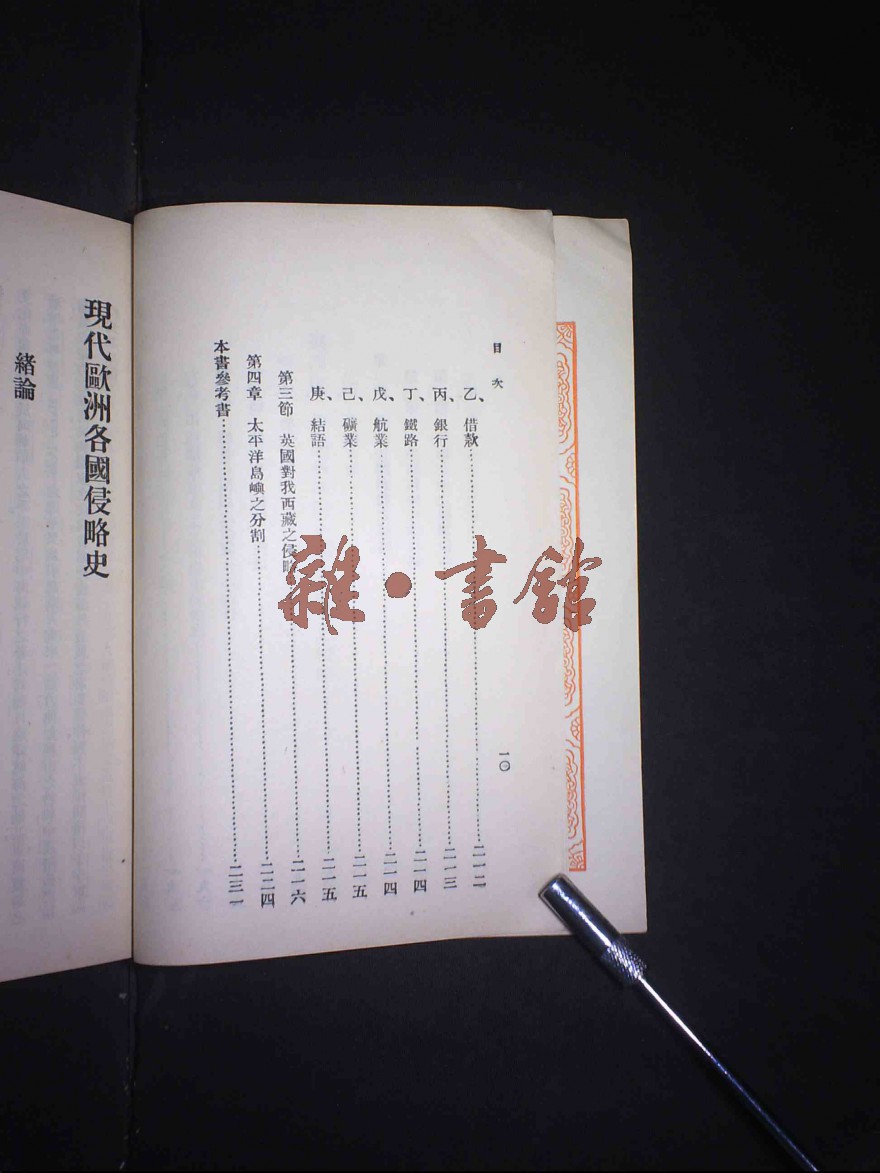 目次
一〇
乙、借款……二一二
丙、銀行……二一三
丁、鐵路……二一四
戊、航業……二一四
己、礦業……二一五
庚、結語……二一五
第三節 英國對我西藏之侵略……二一六
第四章 太平洋島嶼之分割……二二四
本書參考書……二三一
現代歐洲各國侵略史
緒論
雜·書館